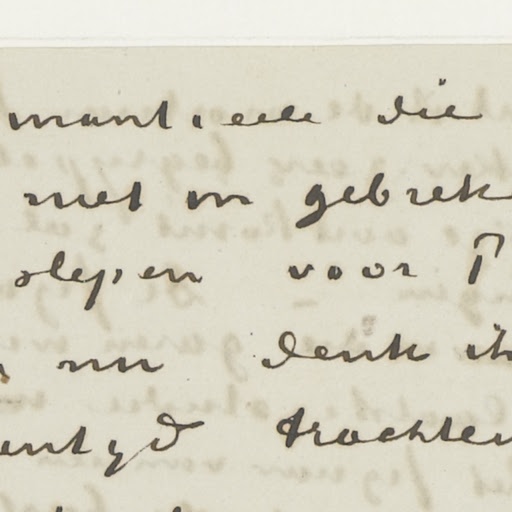 die
met m gebrek
slepen voor P
nu denk ik
entyd trachten